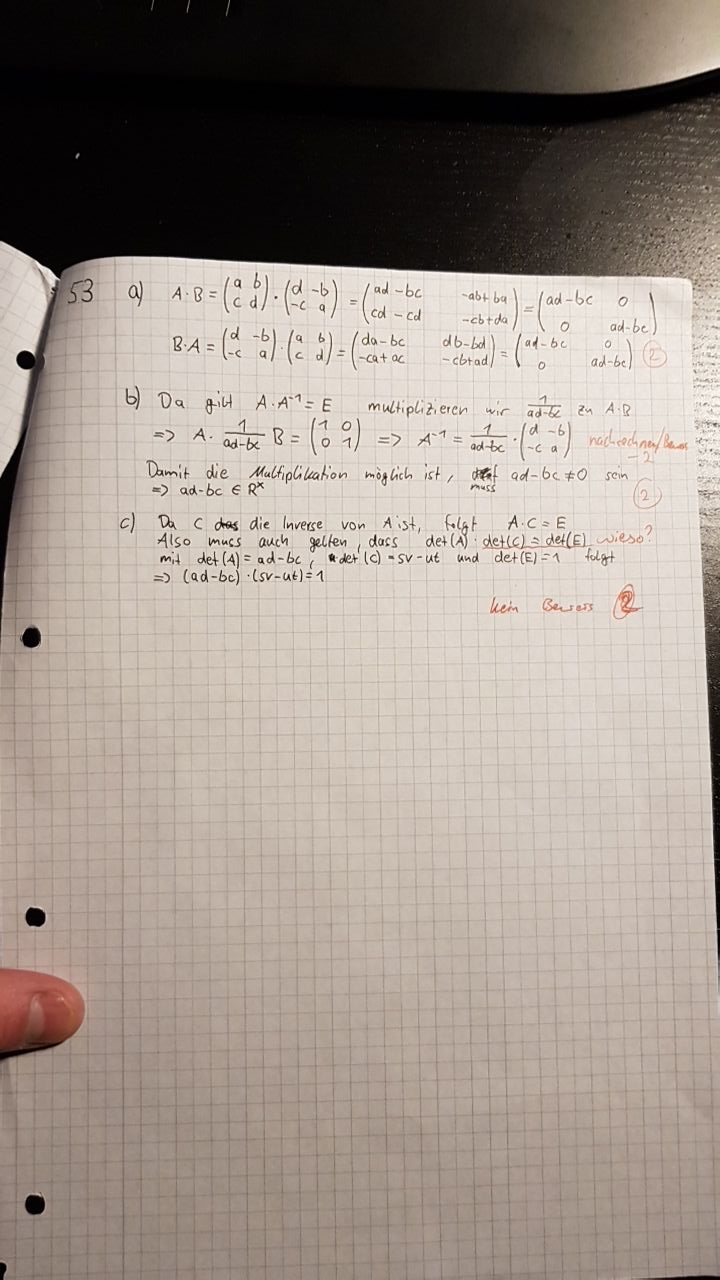 53 a) A·B = (a b / c d) · (d -b / -c a) = (ad-bc -ab+ba / cd-cd -cb+da) = (ad-bc 0 / 0 ad-bc)
B·A = (d -b / -c a) · (a b / c d) = (da-bc db-bd / -ca+ac -cb+ad) = (ad-bc 0 / 0 ad-bc) 2
b) Da gilt A·A⁻¹ = E multiplizieren wir 1/ad-bc zu A·B
=> A· 1/ad-bc B = (1 0 / 0 1) => A⁻¹ = 1/ad-bc · (d -b / -c a) nachrechnen/Beweis
-2
Damit die Multiplikation möglich ist, muss ad-bc ≠ 0 sein
=> ad-bc ∈ R^x 2
c) Da C die Inverse von A ist, folgt A·C = E
Also muss auch gelten, dass det(A)·det(C) = det(E) wieso?
mit det(A) = ad-bc, det(C) = sv-ut und det(E) = 1 folgt
=> (ad-bc)·(sv-ut) = 1
kein Beweis 2